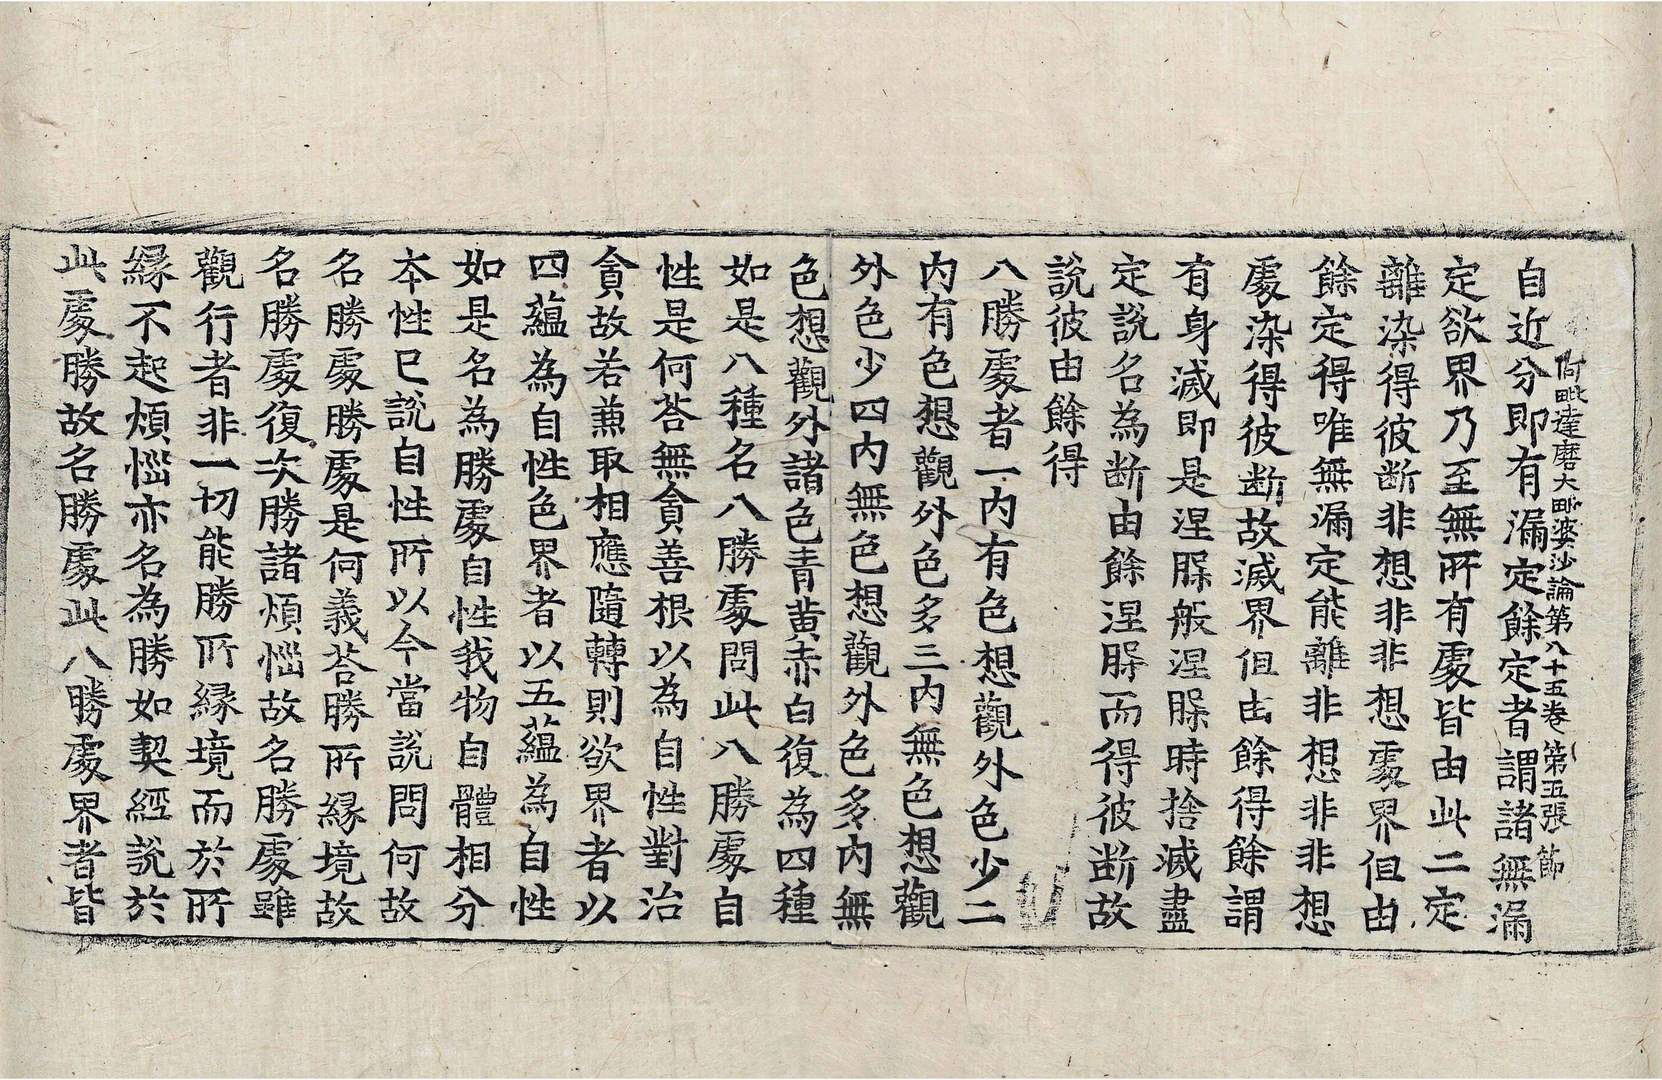 阿毗達磨大毗婆沙論第八十五卷 第五張 節
自近分即有漏定餘定者謂諸無漏
定欲界乃至無所有處皆由此二定
離染得彼断非想非非想處界但由
餘定得唯無漏定能離非想非非想
處染得彼断故滅界但由餘得餘謂
有身滅即是涅槃般涅槃時捨滅盡
定說名為断由餘涅槃而得彼断故
說彼由餘得
八勝處者一内有色想觀外色少二
内有色想觀外色多三内無色想觀
外色少四内無色想觀外色多内無
色想觀外諸色青黃赤白復為四種
如是八種名八勝處問此八勝處自
性是何荅無貪善根以為自性對治
貪故若兼取相應隨轉則欲界者以
四蘊為自性色界者以五蘊為自性
如是名為勝處自性我物自體相分
本性已說自性所以今當說問何故
名勝處勝處是何義荅勝所緣境故
名勝處復次勝諸煩惱故名勝處雖
觀行者非一切能勝所緣境而於所
緣不起煩惱亦名為勝如契經說於
此處勝故名勝處此八勝處界者皆